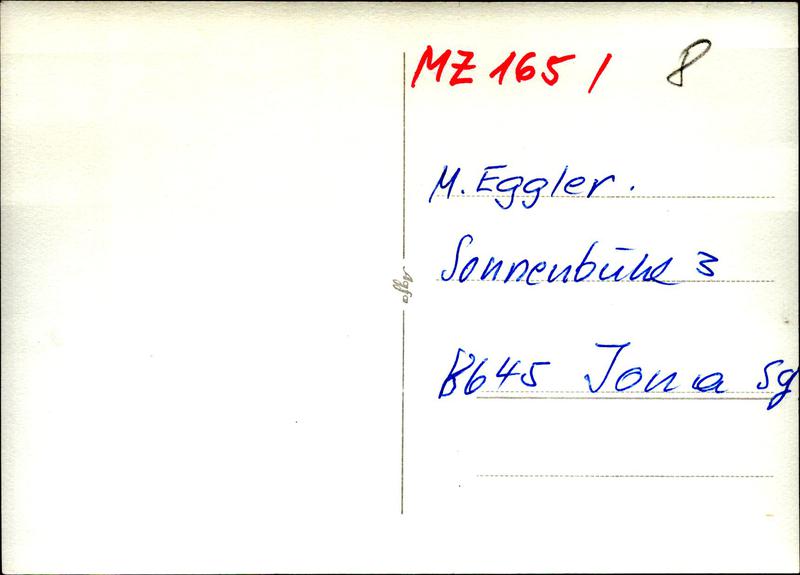 MZ 165 / 8
M. Eggler.
Sonnenbühl 3
Agfa
8645 Jona Sg